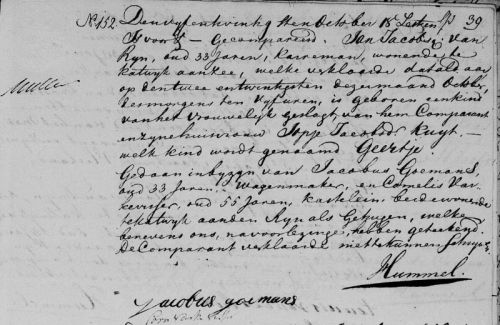 N. 152.
39
Den vyfentwintigsten October 18
is voor - Gecompareerd. Jan Jacobsz. van
Ryn, oud 33 Jaren, Karreman, wonende te
Katwyk aan Zee, welke verklaarde dat aldaar
op den twee entwintigsten dezer maand October,
des morgens ten vyf uren, is geboren een kind
van het Vrouwelyk geslagt, van hem Comparant
en zyne huisvrouw Jopje Jacobsdr Kuyt. —
welk kind wordt genaamd Geertje
Gedaan in byzyn van Jacobus Goemans,
oud 33 Jaren, Wagenmaker, en Cornelis
oud 55 Jaren, Kastelein, beide wonende
te Katwyk aan den Ryn als Getuigen, welke
benevens ons, na voorlezinge, hebben geteekend.
De Comparant verklaarde niet te kunnen schryven
Hummel.
Jacobus goemans